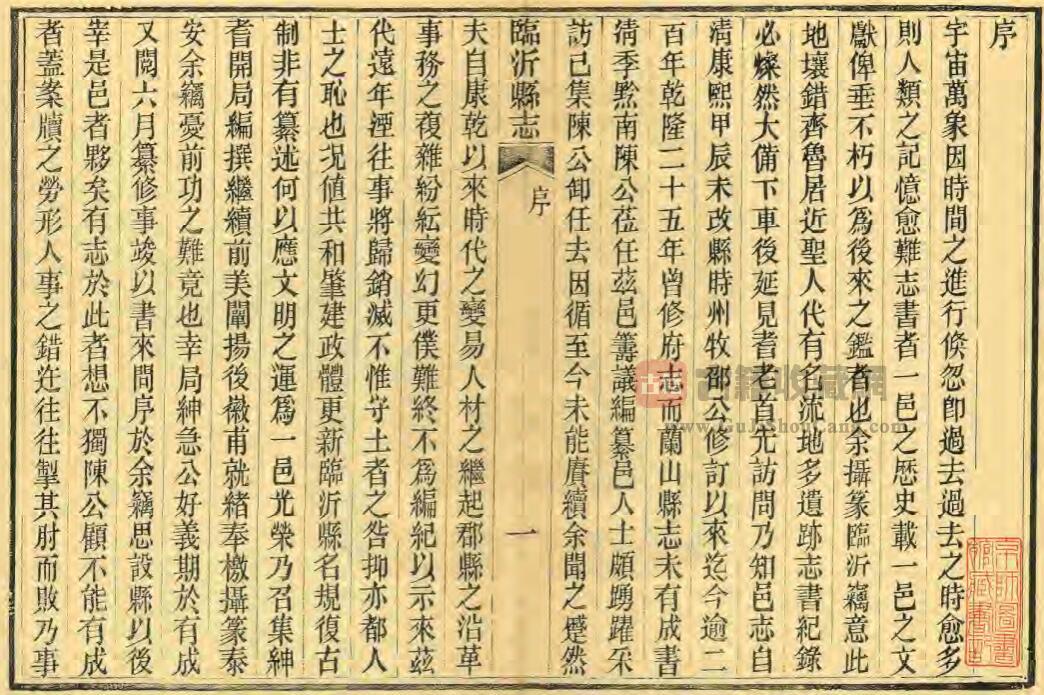 序
宇宙萬象因時間之進行倏忽卽過去過去之時愈多
則人類之記憶愈難志書者一邑之歷史載一邑之文
獻俾垂不朽以爲後來之鑑者也余攝篆臨沂竊意此
地壤錯齊魯居近聖人代有名流地多遺跡志書紀錄
必燦然大備下車後延見耆老首先訪問乃知邑志自
淸康熙甲辰未改縣時州牧邵公修訂以來迄今逾二
百年乾隆二十五年曾修府志而蘭山縣志未有成書
淸季黔南陳公莅任茲邑籌議編纂邑人士頗踴躍采
訪已集陳公卸任去因循至今未能賡續余聞之蹙然
臨沂縣志
序
一
夫自康乾以來時代之變易人材之繼起郡縣之沿革
事務之複雜紛紜變幻更僕難終不爲編紀以示來茲
代遠年湮往事將歸銷滅不惟守土者之咎抑亦都人
士之恥也況値共和肇建政體更新臨沂縣名規復古
制非有纂述何以應文明之運爲一邑光榮乃召集紳
耆開局編撰繼續前美闡揚後徽甫就緒奉檄攝篆泰
安余竊憂前功之難竟也幸局紳急公好義期於有成
又閱六月纂修事竣以書來問序於余竊思設縣以後
宰是邑者夥矣有志於此者想不獨陳公顧不能有成
者蓋案牘之勞形人事之錯迕往往掣其肘而敗乃事
古籍收藏網
www.GuJiShouCang.com